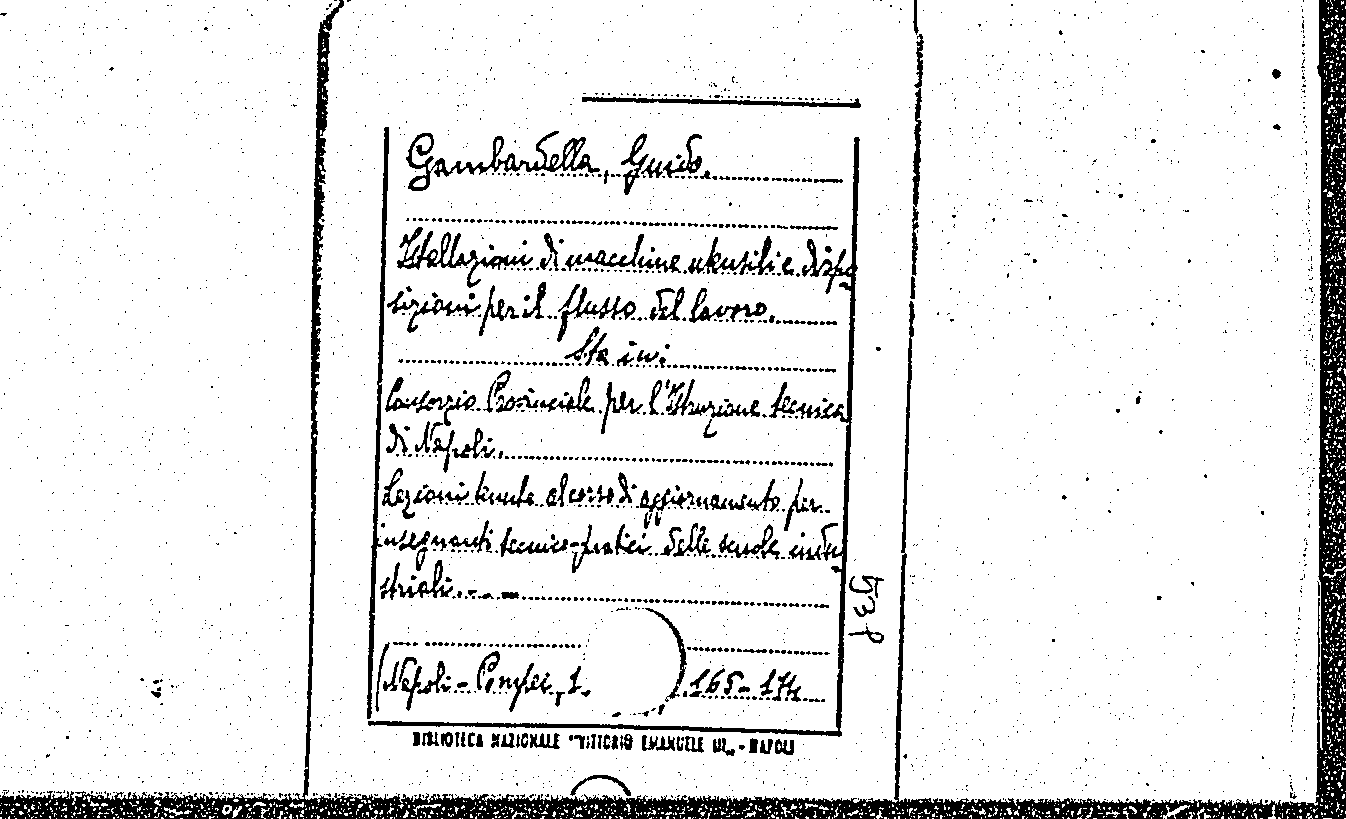 Gambardella, Guido.
Istallazioni di macchine utensili e dispo
sizioni per il flusso del lavoro.
Sta in:
Consorzio Provinciale per l'Istruzione tecnica
di Napoli.
Lezioni tenute al corso di aggiornamento per
insegnanti tecnico-pratici delle scuole indu
striali. - - -
(Napoli - 1. 165-174
BIBLIOTECA NAZIONALE "VITTORIO EMANUELE III" - NAPOLI